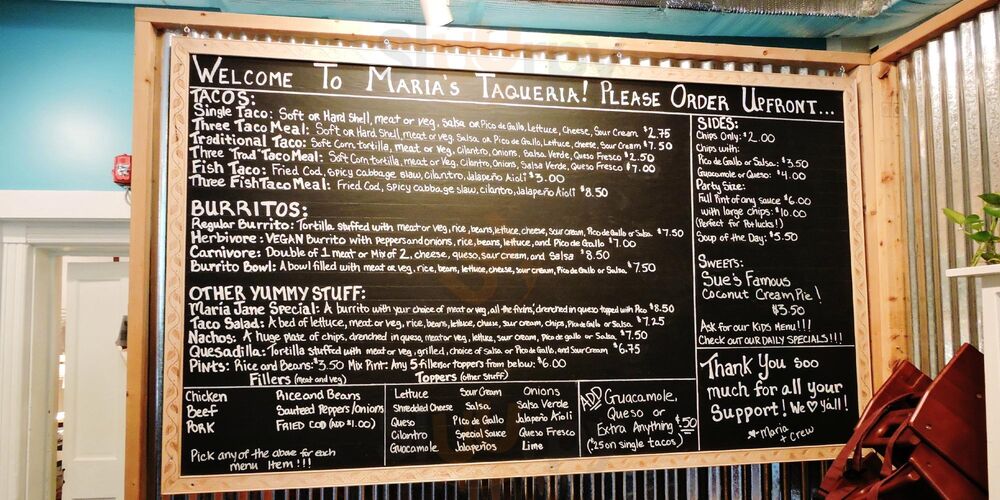 WELCOME TO MARIA'S TAQUERIA! PLEASE ORDER UPFRONT...
TACOS:
Single Taco: Soft OR Hard Shell, meat or veg, Salsa OR Pico de Gallo, Lettuce, Cheese, Sour Cream $2.75
Three Taco Meal: Soft OR Hard Shell, meat or veg, Salsa OR Pico de Gallo, Lettuce, cheese, Sour Cream $7.50
Traditional Taco: Soft Corn tortilla, meat or Veg, Cilantro, Onions, Salsa Verde, Queso Fresco $2.50
Three "Trad" Taco Meal: Soft Corn tortilla, meat or Veg, Cilantro, Onions, Salsa Verde, Queso Fresco $7.00
Fish Taco: Fried Cod, Spicy cabbage slaw, cilantro, Jalapeño Aioli $3.00
Three Fish Taco Meal: Fried Cod, spicy cabbage slaw, cilantro, Jalapeño Aioli $8.50
BURRITOS:
Regular Burrito: Tortilla stuffed with meat or veg, rice, beans, lettuce, cheese, sour cream, Pico de Gallo or Salsa $7.50
Herbivore: VEGAN Burrito with Peppers and onions, rice, beans, lettuce, and Pico de Gallo $7.00
Carnivore: Double of 1 meat or Mix of 2, cheese, queso, sour cream, and Salsa $8.50
Burrito Bowl: A bowl filled with meat or veg, rice, beans, lettuce, cheese, sour cream, Pico de Gallo or Salsa $7.50
OTHER YUMMY STUFF:
Maria Jane Special: A burrito with your choice of meat or veg, all the fixins', drenched in queso topped with Pico $8.50
Taco Salad: A bed of lettuce, meat or veg, rice, beans, lettuce, cheese, sour cream, chips, Pico de Gallo or Salsa $7.25
Nachos: A huge plate of chips, drenched in queso, meat or veg, lettuce, sour cream, Pico de gallo or Salsa $7.50
Quesadilla: Tortilla stuffed with meat or veg, grilled, choice of salsa or Pico de Gallo, and Sour Cream $6.75
PINTS: Rice and Beans: $3.50 Mix Pint: Any 5 fillers or toppers from below: $6.00
Fillers (meat and veg) Toppers (other stuff)
Chicken Rice and Beans
Beef Sauteed Peppers/Onions
PORK FRIED COD (ADD $1.00)
Pick any of the above for each
menu item!!!
Lettuce Sour Cream Onions
Shredded Cheese Salsa Salsa Verde
Queso Pico de Gallo Jalapeño Aioli
Cilantro Special Sauce Queso Fresco
Guacamole Jalapeños Lime
ADD Guacamole,
Queso or
Extra Anything $.50
(.25 on single tacos)
SIDES:
Chips Only: $2.00
Chips with:
Pico de Gallo or Salsa: $3.50
Guacamole or Queso: $4.00
Party Size:
Full Pint of any sauce $6.00
with large chips: $10.00
(Perfect for Potlucks!)
Soup of the Day: $5.50
SWEETS:
Sue's Famous
Coconut Cream Pie!
$3.50
Ask for our KIDS MENU!!!
Check out our DAILY SPECIALS!!!
Thank You soo
much for all your
Support! We ♡ y'all!
Maria
+ Crew